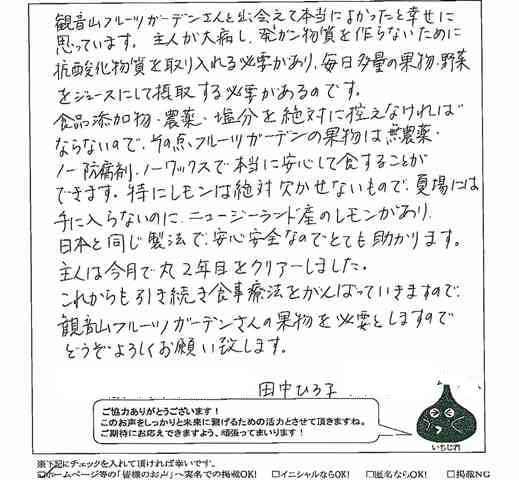 観音山フルーツガーデンさんと出会えて本当によかったと幸せに
思っています。主人が大病し、発ガン物質を作らないために
抗酸化物質を取り入れる必要があり、毎日多量の果物・野菜
をジュースにして摂取する必要があるのです。
食品添加物・農薬・塩分を絶対に控えなければ
ならないので、その点、フルーツガーデンの果物は無農薬・
ノー防腐剤・ノーワックスで本当に安心して食することが
できます。特にレモンは絶対欠かせないもので、夏場には
手に入らないのに、ニュージーランド産のレモンがあり、
日本と同じ製法で、安心安全なのでとても助かります。
主人は今月で丸2年目をクリアーしました。
これからも引き続き食事療法をがんばっていきますので、
観音山フルーツガーデンさんの果物を必要としますので
どうぞよろしくお願い致します。
田中ひろ子
ご協力ありがとうございます！
このお声をしっかりと未来に繋げるための活力とさせて頂きますね。
ご期待にお応えできますよう、頑張ってまいります！
いちじ君
※下記にチェックを入れて頂ければ幸いです。
☑ホームページ等の「皆様のお声」へ実名での掲載OK! □イニシャルならOK! □匿名ならOK! □掲載NG